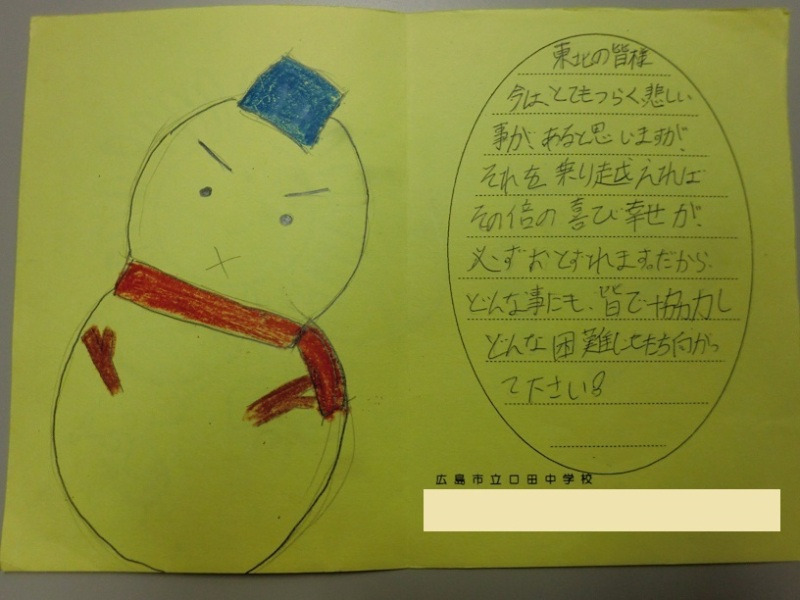 東北の皆様
今は、とてもつらく、悲しい
事が、あると思いますが、
それを乗り越えれば
その倍の喜び幸せが、
必ずおとずれます。だから、
どんな事にも、皆で協力し
どんな困難にも立ち向かっ
て下さい!
広島市立口田中学校